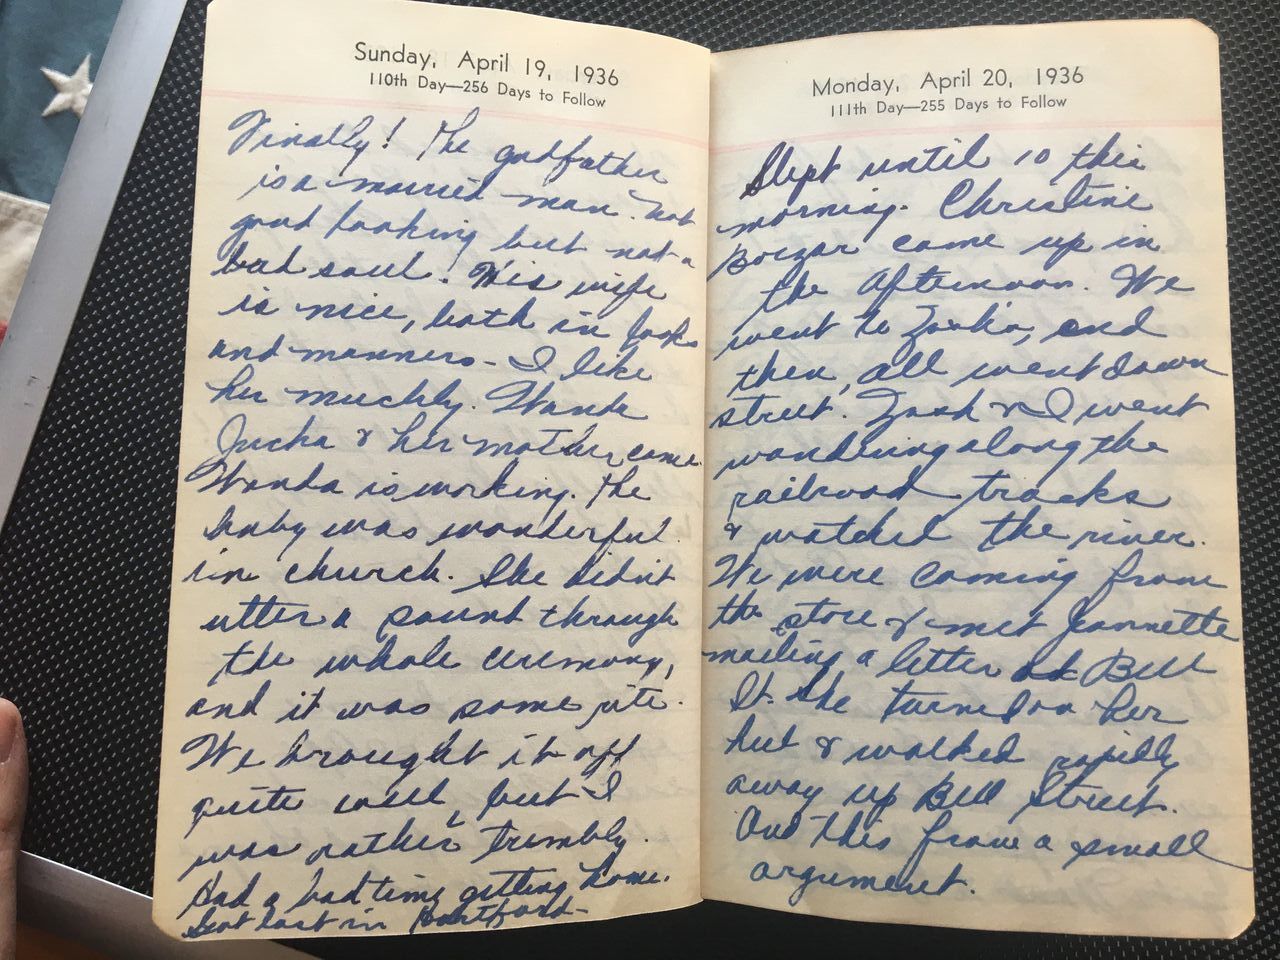 Sunday, April 19, 1936
110th Day—256 Days to Follow
Finally! The godfather
is a married man. Not
good looking but not a
bad soul! His wife
is nice, both in looks
and manners - I like
her muchly. Wanda
Jucha & her mother came.
Wanda is working. The
baby was wonderful
in church. She didn't
utter a sound through
the whole ceremony,
and it was some rite.
We brought it off
quite well, but I
was rather trembly.
Had a bad time getting home.
Got lost in Hartford -
Monday, April 20, 1936
111th Day—255 Days to Follow
Slept until 10 this
morning. Christine
came up in
the afternoon. We
went to Zoshia, and
then, all went down
street. Zosh & I went
wandering along the
railroad tracks
& watched the river.
We were coming from
the store & met Jeannette
mailing a letter at Bell
St. She turned on her
heel & walked rapidly
away up Bell Street.
And this from a small
argument.